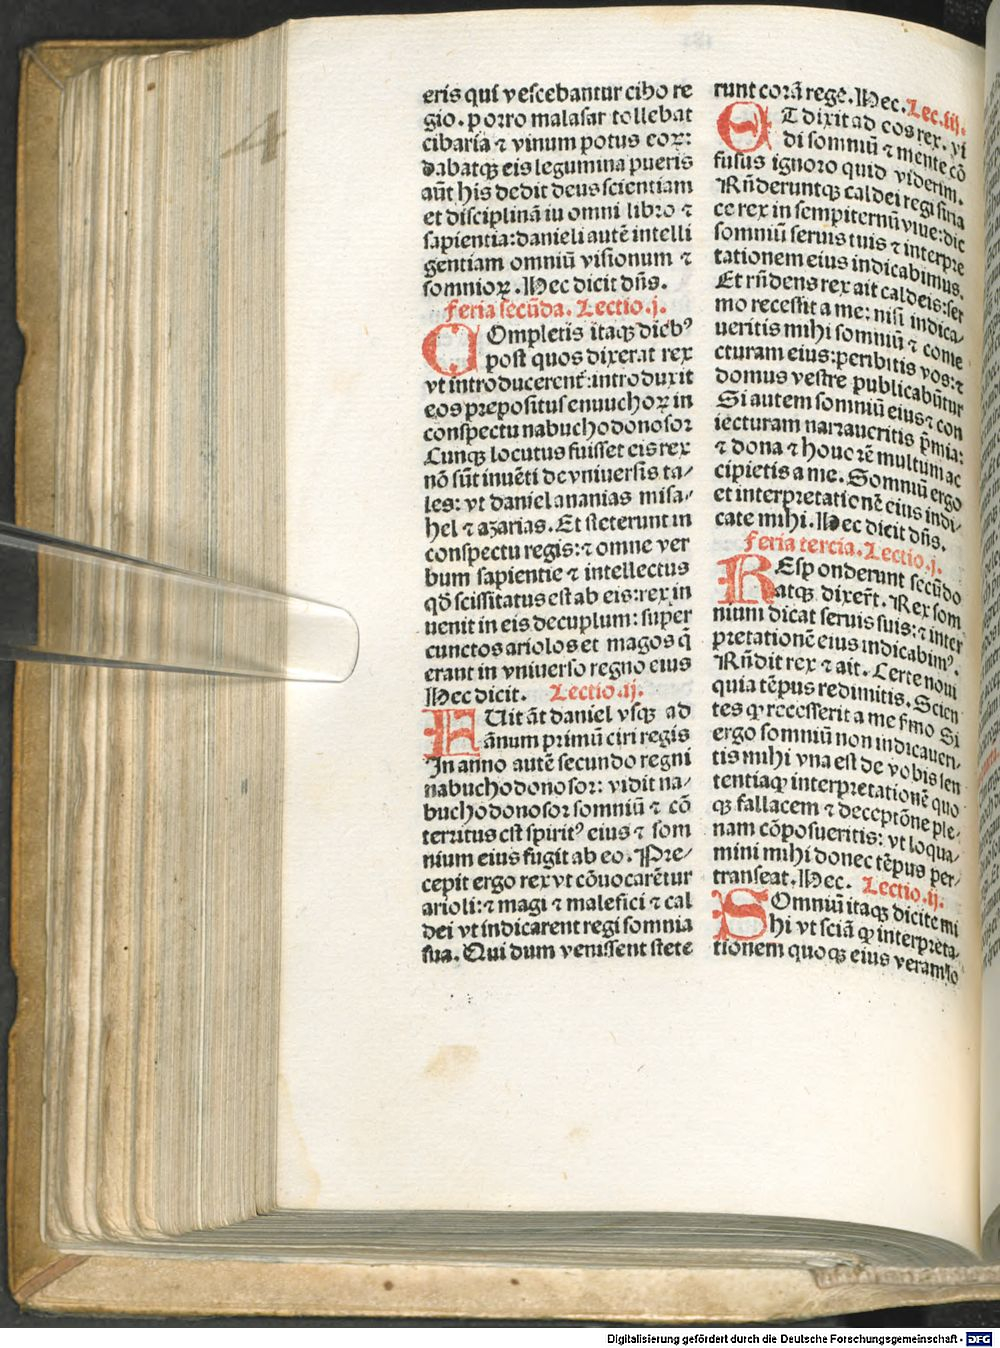 eris qui vescebantur cibo re
gio. porro malasar tollebat
cibaria ⁊ vinum potus eoꝝ:
dabatqꝫ eis legumina pueris
aūt his dedit deus scientiam
et disciplinā iu omni libro ⁊
sapientia: danieli autē intelli
gentiam omniū visionum ⁊
somnioꝝ. Hec dicit dn̄s.
Feria secūda. Lectio.j.
COmpletis itaqꝫ diebꝰ
post quos dixerat rex
vt introducerent᷑: introduxit
eos prepositus enuuchoꝝ in
conspectu nabuchodonosor
Cunqꝫ locutus fuisset eis rex
nō sūt inuēti de vniuersis ta⸗
les: vt daniel ananias misa⸗
hel ⁊ azarias. Et steterunt in
conspectu regis: ⁊ omne ver
bum sapientie ⁊ intellectus
qđ scissitatus est ab eis: rex in
uenit in eis decuplum: super
cunctos ariolos et magos q̄
erant in vniuerso regno eius
Hec dicit. Lectio.ij.
FUit āt daniel vsqꝫ ad
ānum primū ciri regis
In anno autē secundo regni
nabuchodonosor: vidit na⸗
buchodonosor somniū ⁊ cō
territus est spiritꝰ eius ⁊ som
nium eius fugit ab eo. Pre⸗
cepit ergo rex vt cōuocarētur
arioli: ⁊ magi ⁊ malefici ⁊ cal
dei vt indicarent regi somnia
sua. Qui dum venissent stete
runt corā rege. Hec. Lec.iij.
ET dixit ad eos rex. vi
di somniū ⁊ mente cō
fusus ignoro quid viderim.
Rn̄deruntqꝫ caldei regi siria
ce rex in sempiternū viue: dic
somniū seruis tuis ⁊ interpre
tationem eius indicabimus.
Et rn̄dens rex ait caldeis: ser
mo recessit a me: nisi indica⸗
ueritis mihi somniū ⁊ conie
cturam eius: peribitis vos: ⁊
domus vestre publicabūtur
Si autem somniū eius ⁊ con
iecturam narraueritis p̄mia:
⁊ dona ⁊ honorē multum ac
cipietis a me. Somniū ergo
et interpretationē eius indi⸗
cate mihi. Hec dicit dn̄s.
Feria tercia. Lectio.j.
REsponderunt secūdo
atqꝫ dixer̄t. Rex som
nium dicat seruis suis: ⁊ inter
pretationē eius indicabimꝰ.
Rn̄dit rex ⁊ ait. Certe noui
quia tēpus redimitis. Scien
tes ꝙ recesserit a me s̄mo Si
ergo somniū non indicaueri⸗
tis mihi vna est de vobis sen
tentiaqꝫ interpretationē quo
qꝫ fallacem ⁊ deceptōne ple⸗
nam cōposueritis: vt loqua⸗
mini mihi donec tēpus per⸗
transeat. Hec. Lectio.ij.
SOmniū itaqꝫ dicite mi
hi vt sciā ꝙ interpreta⸗
tionem quoqꝫ eius veram lo
Digitalisierung gefördert durch die Deutsche Forschungsgemeinschaft - DFG